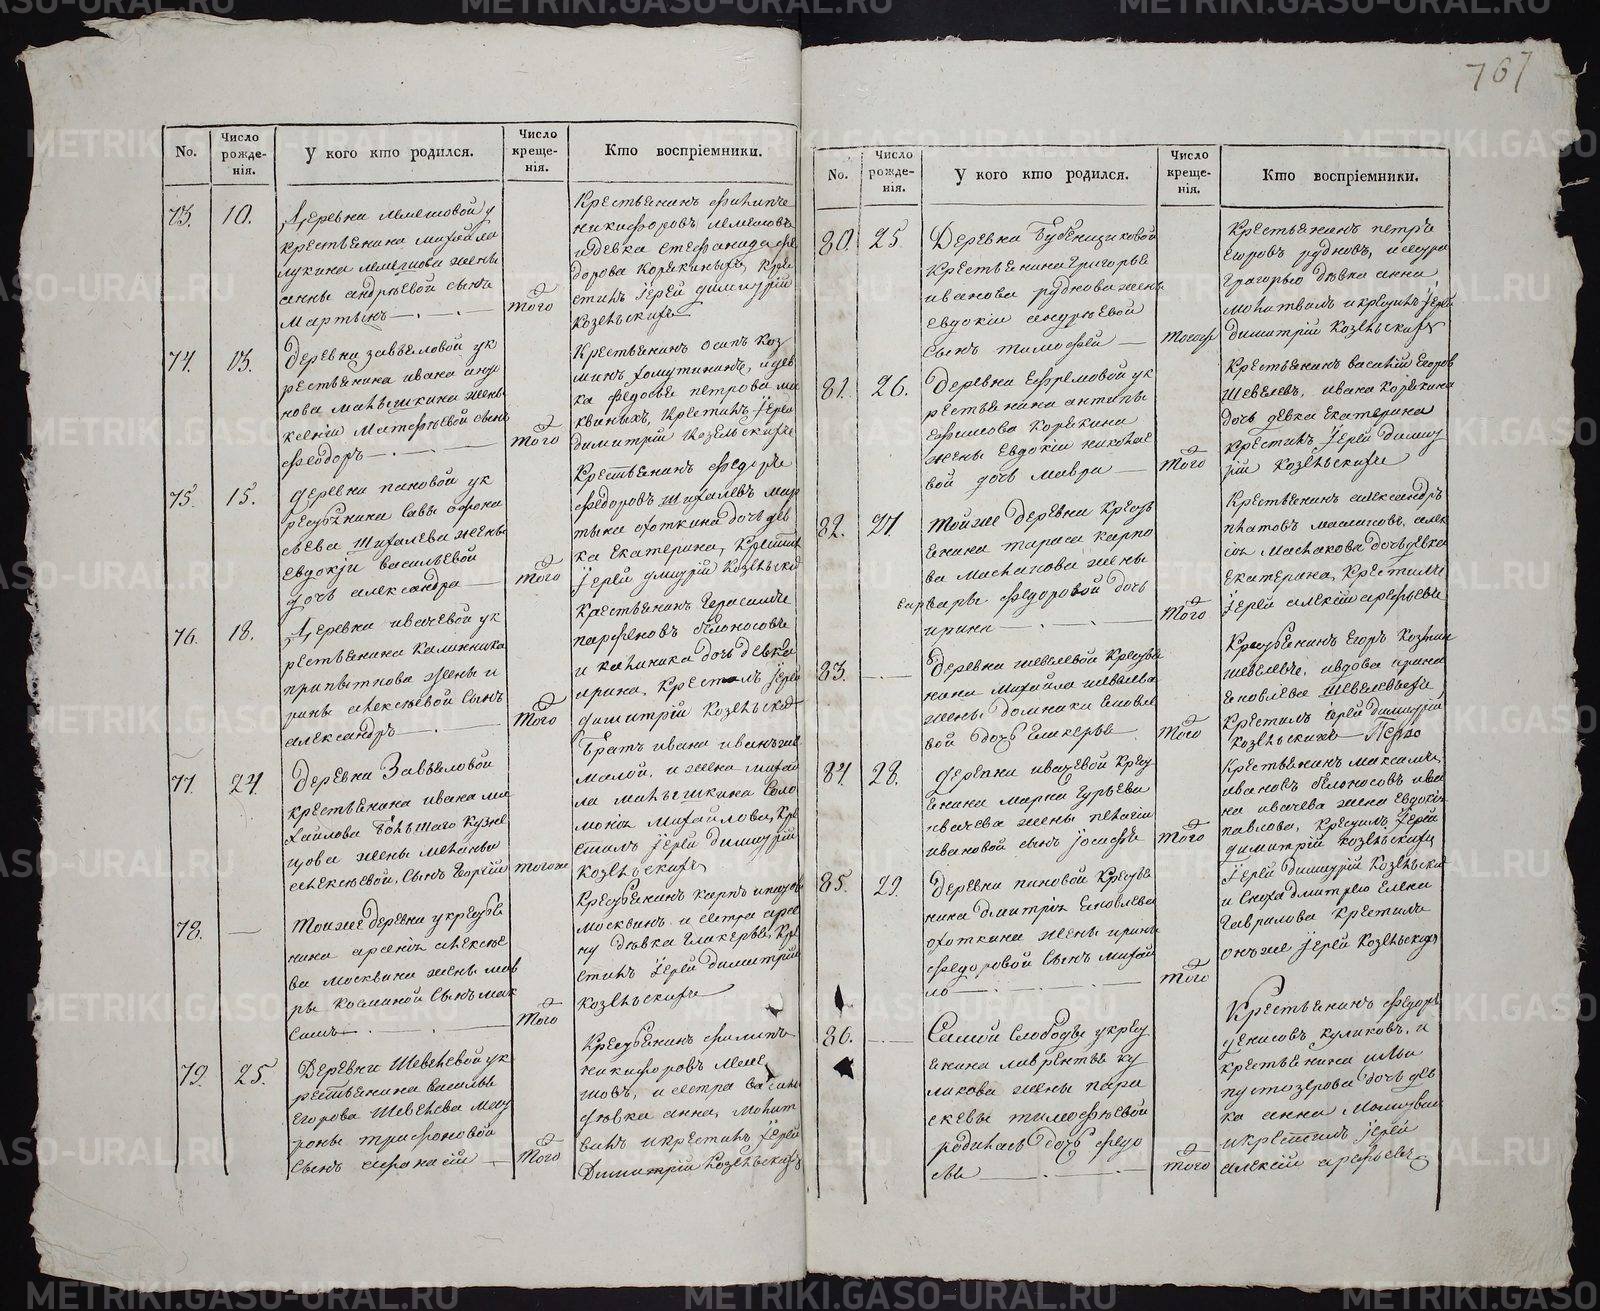 767
No. Число рожде- нія. У кого кто родился. Число креще- нія. Кто воспріемники.
73. 10. Деревни лемешовой у
крестьянина михайла
лукина лемешова жены
анны андрѣевой сынъ
Мартынъ
того
Крестьянинъ филипъ
никифоровъ лемешовъ
и девка стефанида фе
дорова корякиныхъ, кре
стилъ Іерей димитрій
Козельскихъ
74. 13. Деревни завьяловой у к
рестьянина ивана
нова малышкина жены
ксеніи Матфѣевой сынъ
Феодоръ
того
Крестьянинъ осипъ коз
минъ хомутининъ, и дев
ка федосья петрова мо
квиныхъ, крестилъ Іерей
димитрій Козельскихъ
75. 15. деревни пановой у к
рестьянина савы афона
сьева Шихалева жены
Евдокіи васильевой
дочь александра
того
Крестьянинъ федоръ
федоровъ шихалевъ мар
тына охоткина дочь дев
ка Екатерина, крестилъ
Іерей димитрій Козельских
76. 18. Деревни ивачевой у к
рестьянина калинника
припыткова жены и
рины алексѣевой сынъ
александръ
того
крестьянинъ Герасимъ
парфеновъ белоносовъ
и калиника дочь девка
ирина, крестилъ Іерей
димитрій Козельских
77. 24. Деревни Завьяловой
крестьянина ивана ми
хайлова Большаго Кузне
цова жены меланьи
алексѣевой, сынъ Георгій
тогоже
Братъ ивана иванъ же
малой, и жена михай
ла малышкина соло
монія михайлова, кре
стилъ Іерей димитрій
Козельскихъ
78. — Тойже деревни у крестья
нина арсенія алексѣе
ва москвина жены мав
ры козминой сынъ мак
симъ
того
Крестьянинъ карпъ
москвинъ и сестра арсе
ну дѣвка гликерья, кре
стилъ Іерей димитрій
Козельскихъ
79. 25. Деревни Шевелевой у к
рестьянина василья
Егорова Шевелева мат
роны трифоновой
сынъ афанасій
того
Крестьянинъ филипъ
никифоровъ леме
шовъ, и сестра василью
дѣвка анна, молит
вилъ и крестилъ Іерей
Димитрій Козельскихъ
No. Число рожде- нія. У кого кто родился. Число креще- нія. Кто воспріемники.
80. 25. Деревни Бубенщиковой
Крестьянина Григорья
иванова руднова жены
евдокіи андрѣевой
сынъ тимофей
тогож
Крестьянинъ петръ
егоровъ рудновъ, и сестра
григорью дѣвка анна
молитвилъ и крестилъ Іерей
димитрій Козельскихъ
81. 26. Деревни Ефремовой у к
рестьянина антипы
Ефимова Корякина
жены Евдокіи никола
вой дочь мавра
того
Крестьянинъ василій Егоров
Шевелевъ, ивана корякина
дочь девка екатерина
крестилъ Іерей димит
рій Козельскихъ
82. 27. Тойже деревни крест
янина тараса карпо
ва Маслакова жены
варвары федоровой дочь
ирина
того
Крестьянинъ александръ
платовъ маслаковъ, алек
сія Маслакова дочь девка
екатерина, крестилъ
Іерей алексій арефьевъ
83. — Деревни шевелевой крестья
нина Михайла шевелева
жены домники Яковле
вой дочь гликерья
того
Крестьянинъ Егоръ козмин
шевелевъ, и вдова ирина
Яковлева Шевелевыхъ
Крестилъ іерей димитрій
Козельскихъ
84. 28. деревни ивачевой крест
янина марка гурьева
ивачева жены пелагіи
ивановой сынъ Іосифъ
того
Крестьянинъ максимъ
ивановъ белоносовъ ива
на ивачева жена Евдокія
павлова, крестилъ Іерей
димитрій козельскихъ
85. 29. Деревни пановой Крестья
нина дмитрія Яковлева
охоткина жены ирины
федоровой сынъ михай
ло
того
Іерей димитрій Козельски
и сноха дмитрею Елена
Гаврилова крестилъ
онъже Іерей Козельскихъ
86. — Самой слободы у крест
янина лаврентья ку
ликова жены пара
скевы тимофѣевой
родилась дочь федо
сья
того
Крестьянинъ федоръ
денисовъ куликовъ, и
крестьянина ильи
пустозерова дочь дев
ка анна молитвил
и крестилъ Іерей
алексій арефьевъ